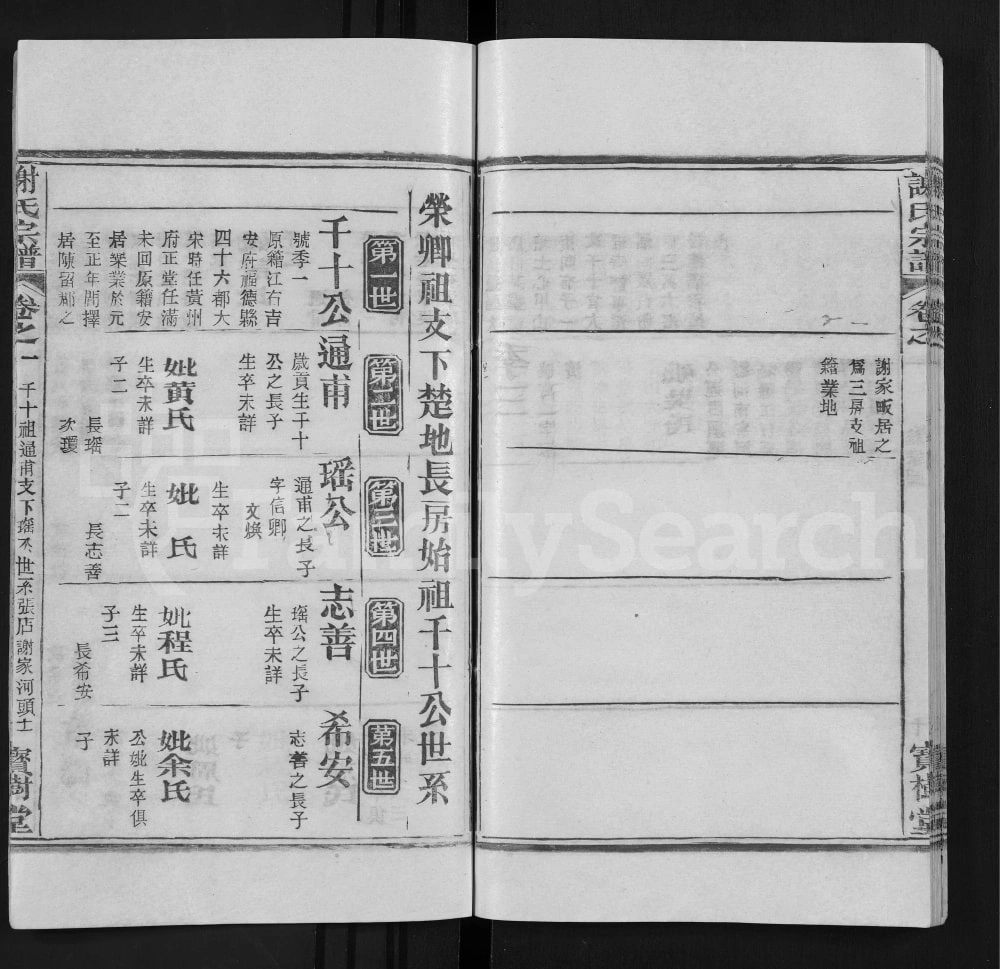 謝氏宗譜
卷之
寶樹堂
謝家畈居之
爲三房支祖
籍業地
榮卿祖支下楚地長房始祖千十公世系
第一世
千十公
號季一
原籍江右吉
安府福德縣
四十六都大
宋時任黃州
府正堂任滿
未回原籍安
居樂業於元
至正年間擇
居陳
第二世
通甫
歲貢生千十
公之長子
生卒未詳
妣黄氏
生卒未詳
子二
長瑶
次瓌
第三世
瑶公
通甫之長子
字信卿
文焕
生卒未詳
妣 氏
生卒未詳
子二
長志善
第四世
志善
瑶公之長子
生卒未詳
妣程氏
生卒未詳
子三
長希安
第五世
希安
志善之長子
妣余氏
公妣生卒俱
未詳
子
謝氏宗譜
卷之一
千十祖通甫支下瑶公世系張店謝家河頭士
寶樹堂
FamilySearch